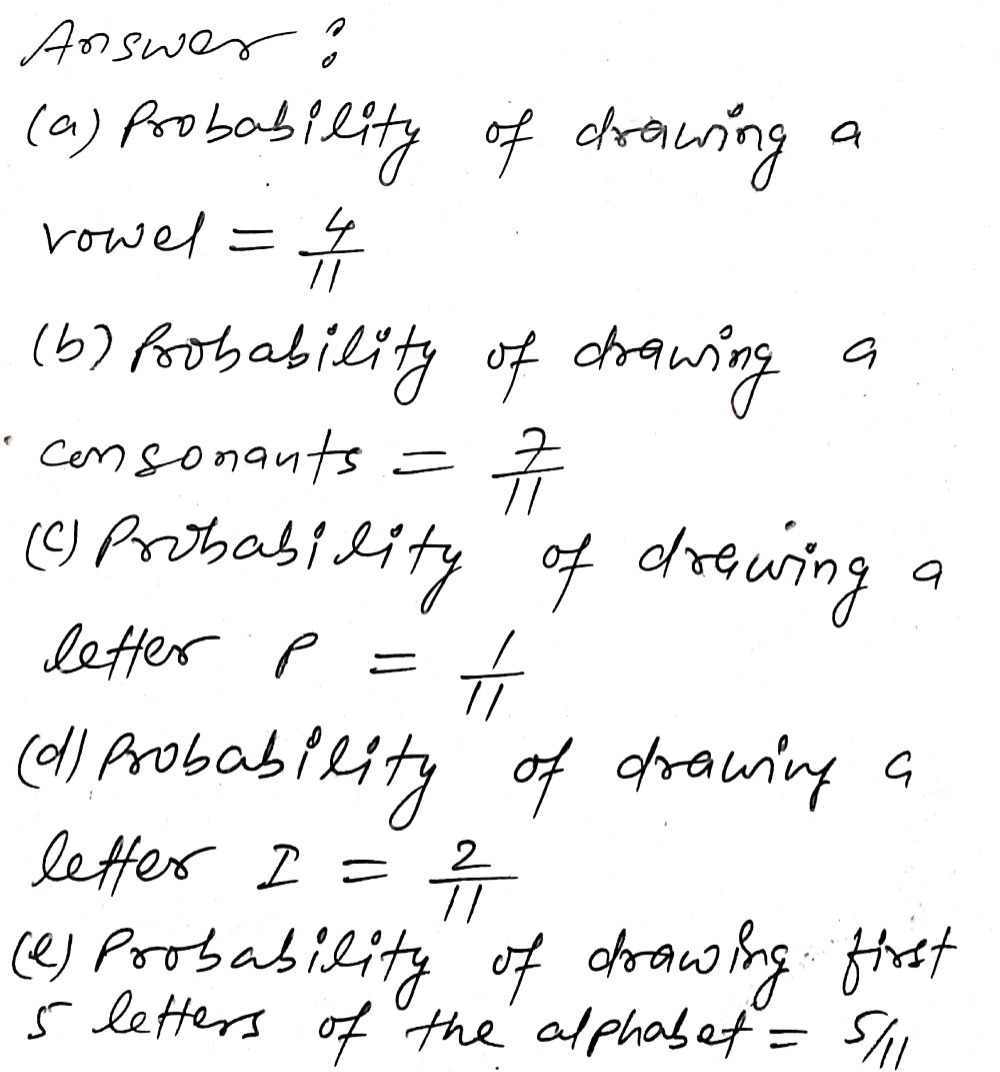 Answer :
(a) Probability of drawing a
vowel = 4/11
(b) Probability of drawing a
consonants = 7/11
(c) Probability of drawing a
letter P = 1/11
(d) Probability of drawing a
letter I = 2/11
(e) Probability of drawing first
5 letters of the alphabet = 5/11